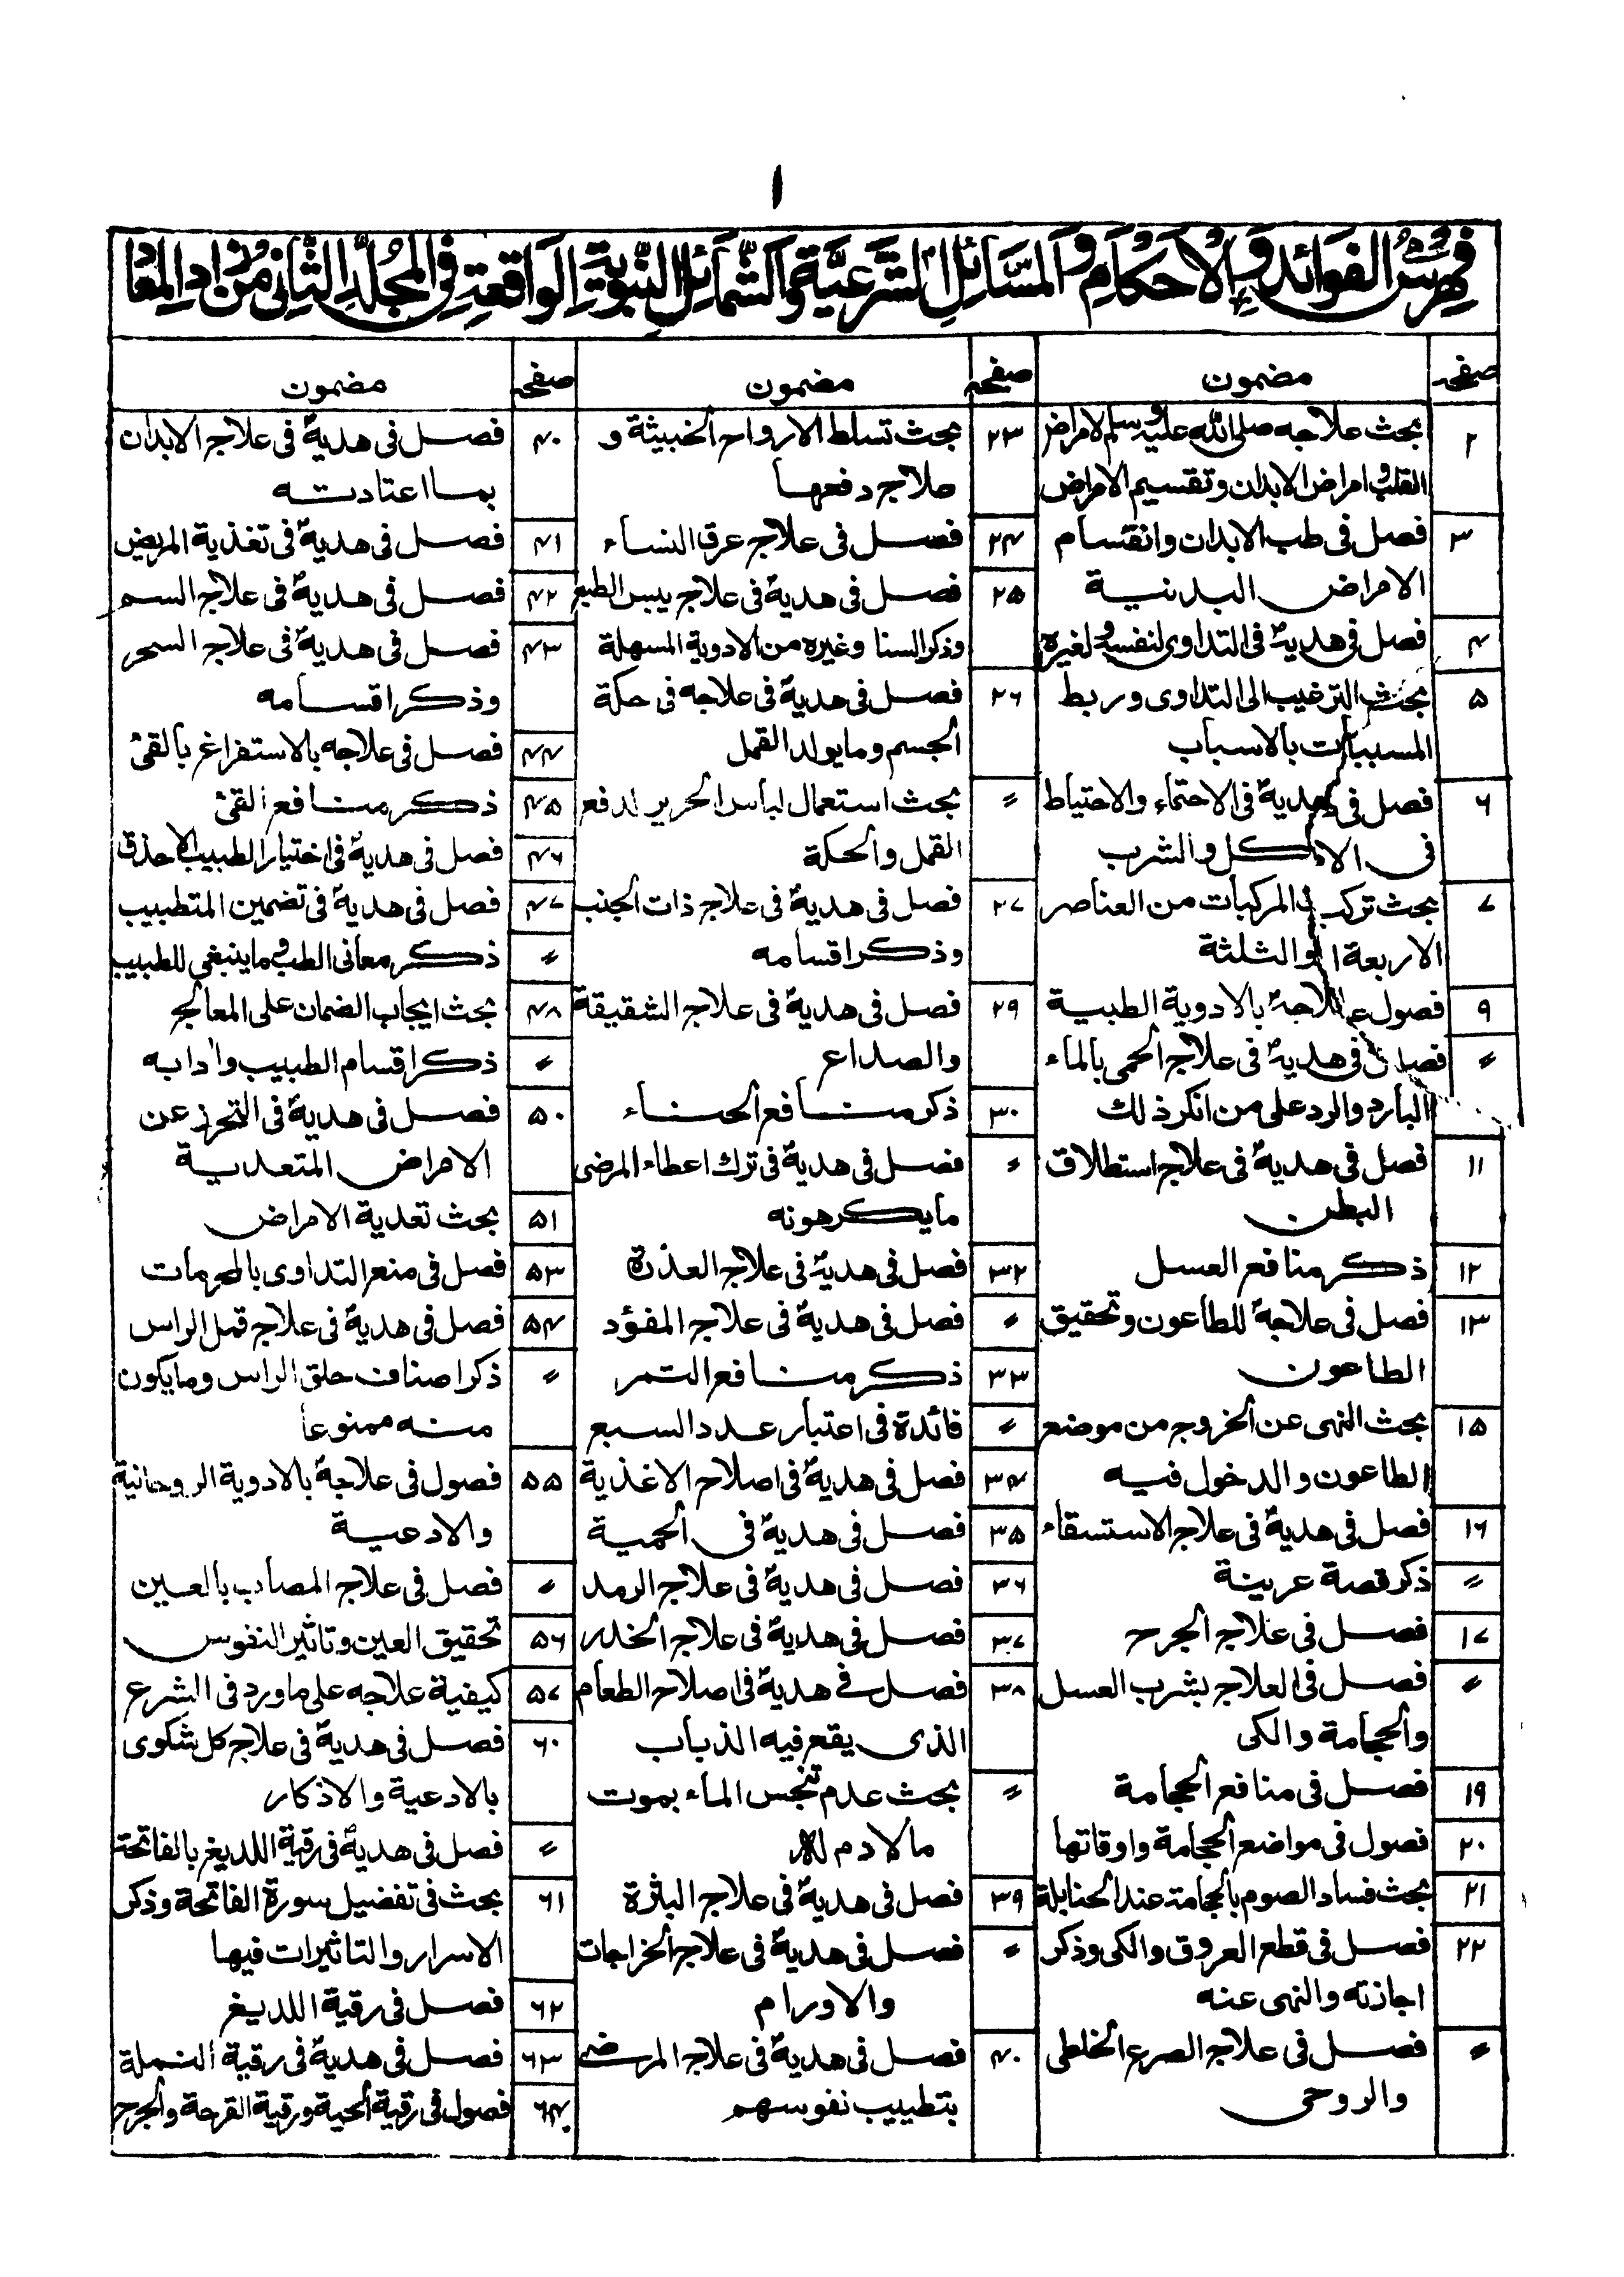 ١
فهرس الفوائد والاحكام والمسائل الشرعية والشمائل النبوية الواقعة في المجلد الثاني من زاد المعاد
صفحه مضمون
٢ بحث علاجه صلى الله عليه وسلم لامراض
القلب وامراض الابدان وتقسيم الامراض
٣ فصل فى طب الابدان وانقسام
الامراض البدنية
٤ فصل فى هديهٖ فى التداوى لنفسه ولغيره
٥ بحث الترغيب الى التداوى وربط
المسببات بالاسباب
٦ فصل فى هديهٖ فى الاحتماء والاحتياط
فى الاكل والشرب
٧ بحث تركب المركبات من العناصر
الاربعة او الثلثة
٩ فصول علاجهٖ بالادوية الطبية
〃 فصل فى هديهٖ فى علاج الحمى بالماء
البارد والرد على من انكر ذلك
١١ فصل فى هديهٖ فى علاج استطلاق
البطن
١٢ ذكر منافع العسل
١٣ فصل فى علاجهٖ للطاعون وتحقيق
الطاعون
١٥ بحث النهى عن الخروج من موضع
الطاعون والدخول فيه
١٦ فصل فى هديهٖ فى علاج الاستسقاء
〃 ذكر قصة عرينة
١٧ فصل فى علاج الجرح
〃 فصل فى العلاج بشرب العسل
والحجامة والكى
١٩ فصل فى منافع الحجامة
٢٠ فصول فى مواضع الحجامة واوقاتها
٢١ بحث فساد الصوم بالحجامة عند الحنابلة
٢٢ فصل فى قطع العروق والكى وذكر
اجازته والنهى عنه
〃 فصل فى علاج الصرع الخلطى
والروحى
صفحه مضمون
٢٣ بحث تسلط الارواح الخبيثة و
علاج دفعها
٢٤ فصل فى علاج عرق النساء
٢٥ فصل فى هديهٖ فى علاج يبس الطبع
وذكر السنا وغيره من الادوية المسهلة
٢٦ فصل فى هديهٖ فى علاجه فى حكة
الجسم وما يولد القمل
〃 بحث استعمال لباس الحرير لدفع
القمل والحكة
٢٧ فصل فى هديهٖ فى علاج ذات الجنب
وذكر اقسامه
٢٩ فصل فى هديهٖ فى علاج الشقيقة
والصداع
٣٠ ذكر منافع الحناء
〃 فصل فى هديهٖ فى ترك اعطاء المرضى
ما يكرهونه
٣٢ فصل فى هديهٖ فى علاج العذرة
〃 فصل فى هديهٖ فى علاج المفؤد
٣٣ ذكر منافع التمر
〃 فائدة فى اعتبار عدد السبع
٣٤ فصل فى هديهٖ فى اصلاح الاغذية
٣٥ فصل فى هديهٖ فى الحمية
٣٦ فصل فى هديهٖ فى علاج الرمد
٣٧ فصل فى هديهٖ فى علاج الخدر
٣٨ فصل فى هديهٖ فى اصلاح الطعام
الذى يقع فيه الذباب
〃 بحث عدم تنجس الماء بموت
مالادم له
٣٩ فصل فى هديهٖ فى علاج البثرة
〃 فصل فى هديهٖ فى علاج الخراجات
والاورام
٤٠ فصل فى هديهٖ فى علاج المرضى
بتطييب نفوسهم
صفحه مضمون
٤٠ فصل فى هديهٖ فى علاج الابدان
بما اعتادته
٤١ فصل فى هديهٖ فى تغذية المريض
٤٢ فصل فى هديهٖ فى علاج السم
٤٣ فصل فى هديهٖ فى علاج السحر
وذكر اقسامه
٤٤ فصل فى علاجه بالاستفراغ بالقئ
٤٥ ذكر منافع القئ
٤٦ فصل فى هديهٖ فى اختيار الطبيب الاحذق
٤٧ فصل فى هديهٖ فى تضمين المتطبيب
〃 ذكر معانى الطب وما ينبغى للطبيب
٤٨ بحث ايجاب الضمان على المعالج
〃 ذكر اقسام الطبيب وادابه
٥٠ فصل فى هديهٖ فى التحرز عن
الامراض المتعدية
٥١ بحث تعدية الامراض
٥٣ فصل فى منع التداوى بالمحرمات
٥٤ فصل فى هديهٖ فى علاج قمل الراس
〃 ذكر اصناف حلق الراس وما يكون
منه ممنوعا
٥٥ فصول فى علاجهٖ بالادوية الروحانية
والادعية
〃 فصل فى علاج المصاب بالعين
٥٦ تحقيق العين وتاثير النفوس
٥٧ كيفية علاجه على ما ورد فى الشرع
٦٠ فصل فى هديهٖ فى علاج كل شكوى
بالادعية والاذكار
〃 فصل فى هديهٖ فى رقية اللديغ بالفاتحة
٦١ بحث فى تفضيل سورة الفاتحة وذكر
الاسرار والتاثيرات فيها
٦٢ فصل فى رقية اللديغ
٦٣ فصل فى هديهٖ فى رقية النملة
٦٤ فصول فى رقية الحية ورقية القرحة والجرح